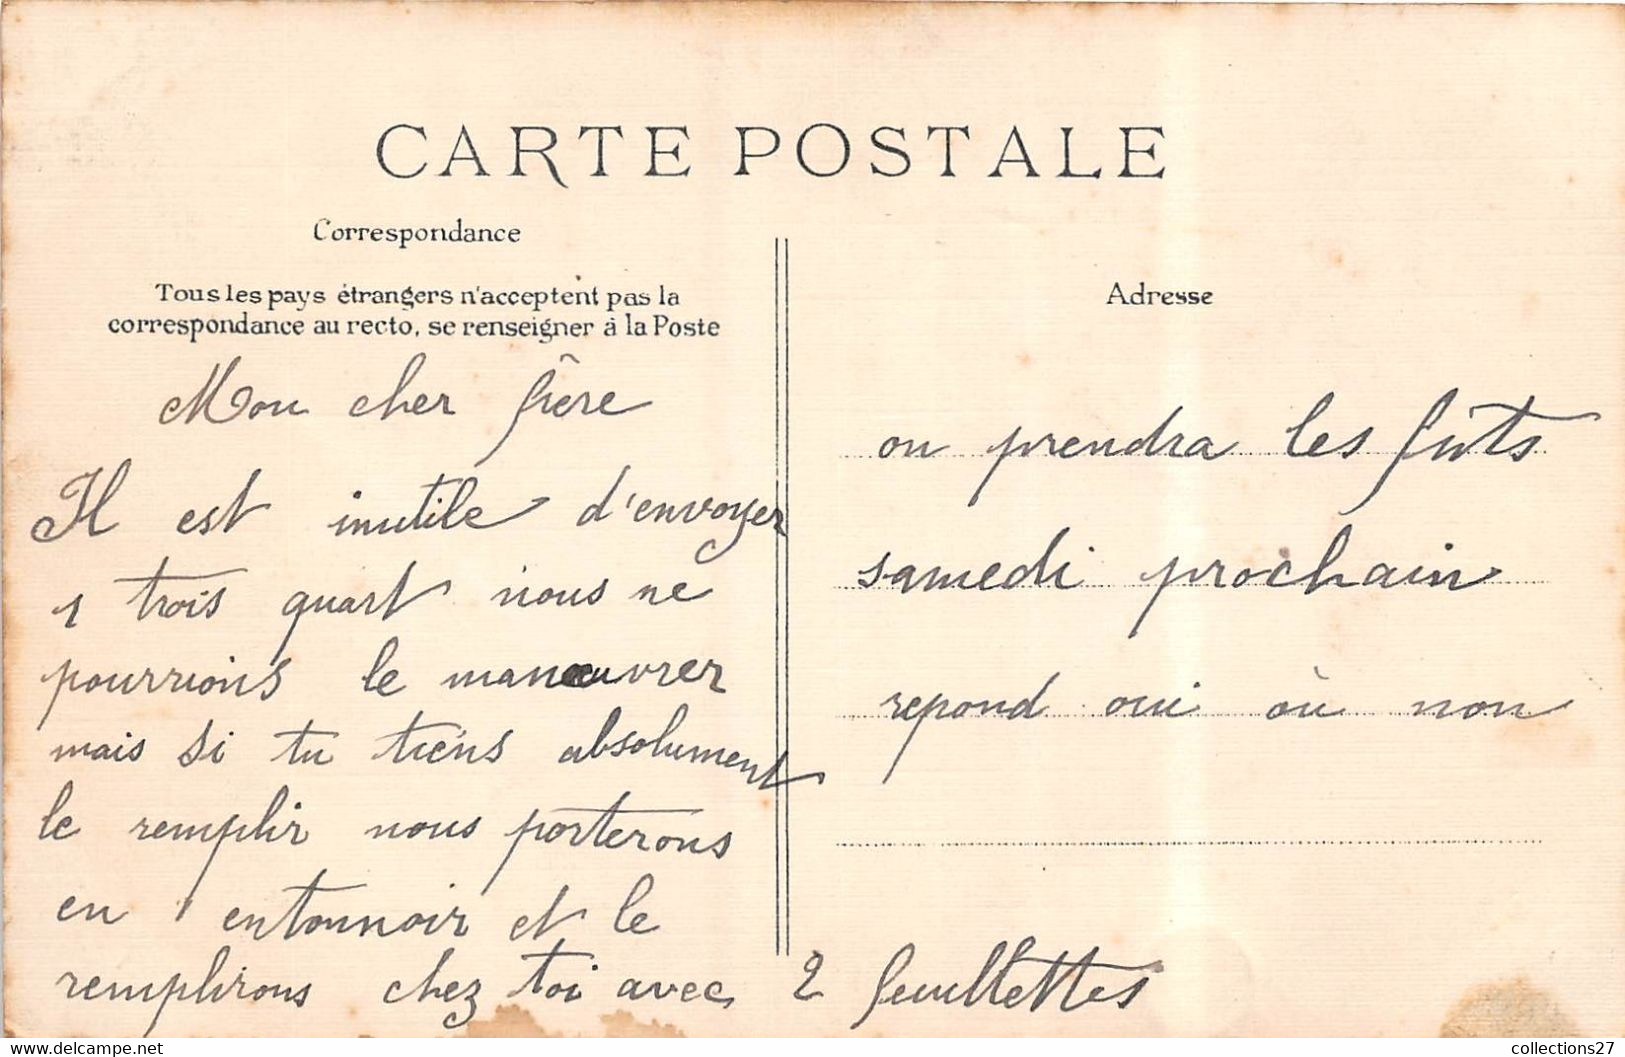 CARTE POSTALE
Correspondance
Tous les pays étrangers n'acceptent pas la
correspondance au recto, se renseigner à la Poste
Mon cher frère
Il est inutile d'envoyer
1 trois quart nous ne
pourrions le manœuvrer
mais si tu tiens absolument
le remplir nous porterons
en entonnoir et le
remplirons chez toi avec 2 feuillettes
Adresse
on prendra les fûts
samedi prochain
repond oui où non
collections27